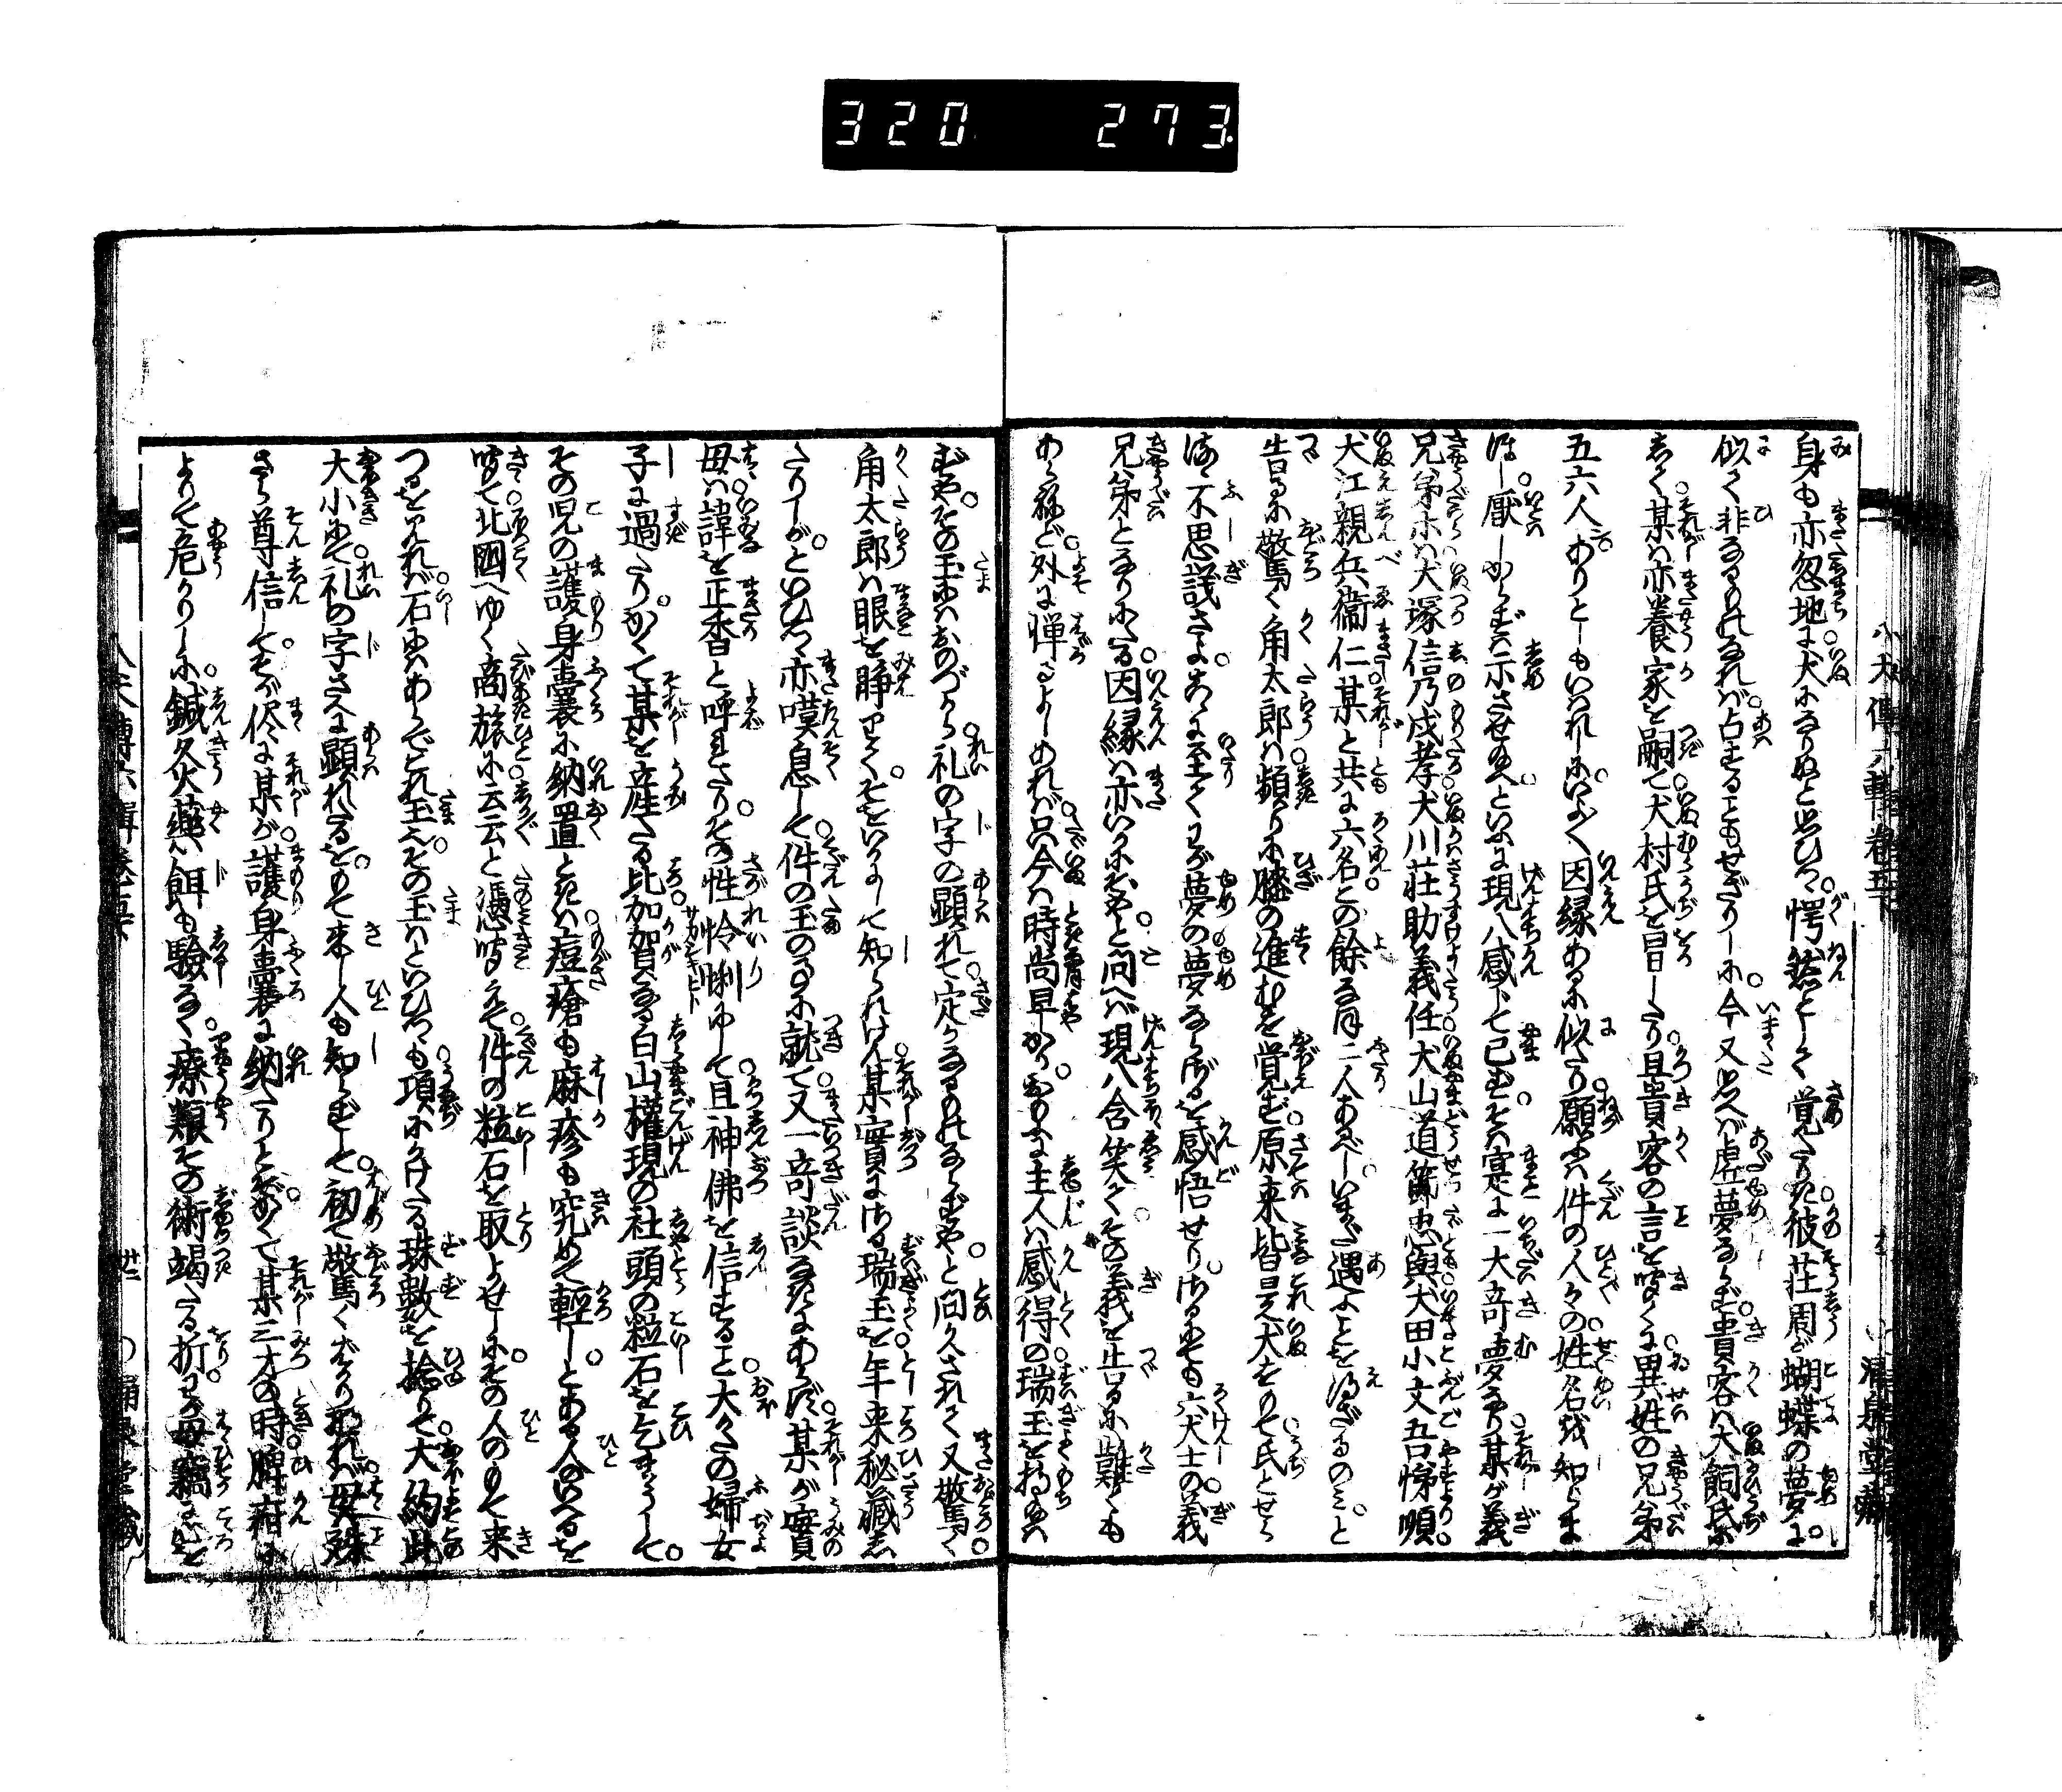 320 273
身も亦忽地に犬になりぬと思ひつゝ愕然として覚たりき彼荘周が蝴蝶の夢に
似て非なるものなれば占することもせざりしに今又思へば虚夢ならず貴客は犬飼氏に
をはし某は亦養家を嗣て犬村氏を冒したり且貴客の言を聞くに異姓の兄弟
五六人ありとしもいはれしにいよゝ因縁あるに似たり願ふは件の人々の姓名を知しま
ほし厭しからずは示させ給へといふに現八感じて已まずそは寔に一大奇夢なり某が義
兄弟等は犬塚信乃戍孝犬川荘助義任犬山道節忠與犬田小文吾悌順
犬江親兵衛仁某と共に六名この餘なほ二人あるべしいまだ遇ことを得ざるのみと
告るに驚く角太郎は頻りに膝の進むを覚ず原来皆是犬をもて氏とせら
るゝ不思議さよこゝに至てわが夢の夢ならざるを感悟せりさるにても六犬士の義
兄弟となりにたる因縁は亦いかにぞやと問へば現八含笑てその義を告るに難くも
あらねど外に憚るよしあれば只今は時尚早かり和殿主人は感得の瑞玉を持給は
ずやその玉にはおのづから礼の字の顕れて定かなるものならずやと問久されて又驚く
角太郎は眼を睜りてそをいかにして知られけん某實にさる瑞玉を年来秘蔵し
たりしがといひつゝ亦嘆息して件の玉の事に就て又一奇談なきにあらず某が實
母は諱を正香と呼れたりその性怜悧にして且神佛を信ずること大かたの婦女
子に過たりかくて某を産たる比加賀なる白山權現の社頭の粒石を乞まうして
その児の護身嚢に納置ときは痘瘡も麻疹も究めて軽しとある人のいへるを
聞て北國へゆく商旅に云云と憑聞えて件の粒石を取よせしにその人のもて来
つるを見れば石にはあらでこれ玉也その玉はといひつゝも項にかけたる珠數を拾りて大約此
大小にて礼の字さへに顕れたるをもて来し人も知らずして初て驚くばかりなれば母は殊
さら尊信してそが侭に某が護身嚢に納たりとぞかくて某三才の時脾疳に
よりて危かりしに鍼灸火薬は餌も驗なく療類その術竭たる折から母竊に思を
八犬傳六輯巻五下
清泉堂藏
八犬傳六輯巻五下
廿三